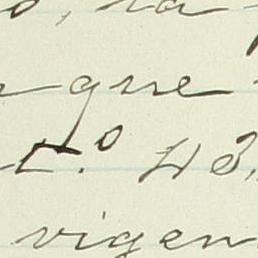 la
que
t.º 43,
vigen